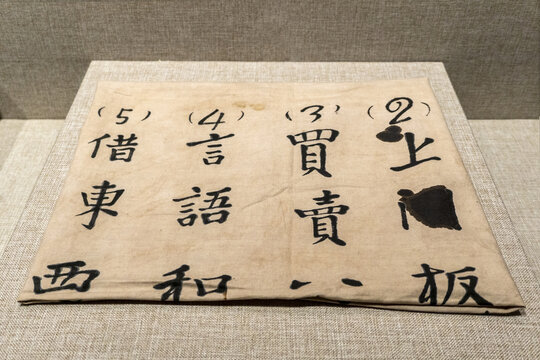 (2)上板
(3)買賣
(4)言語和
(5)借東西